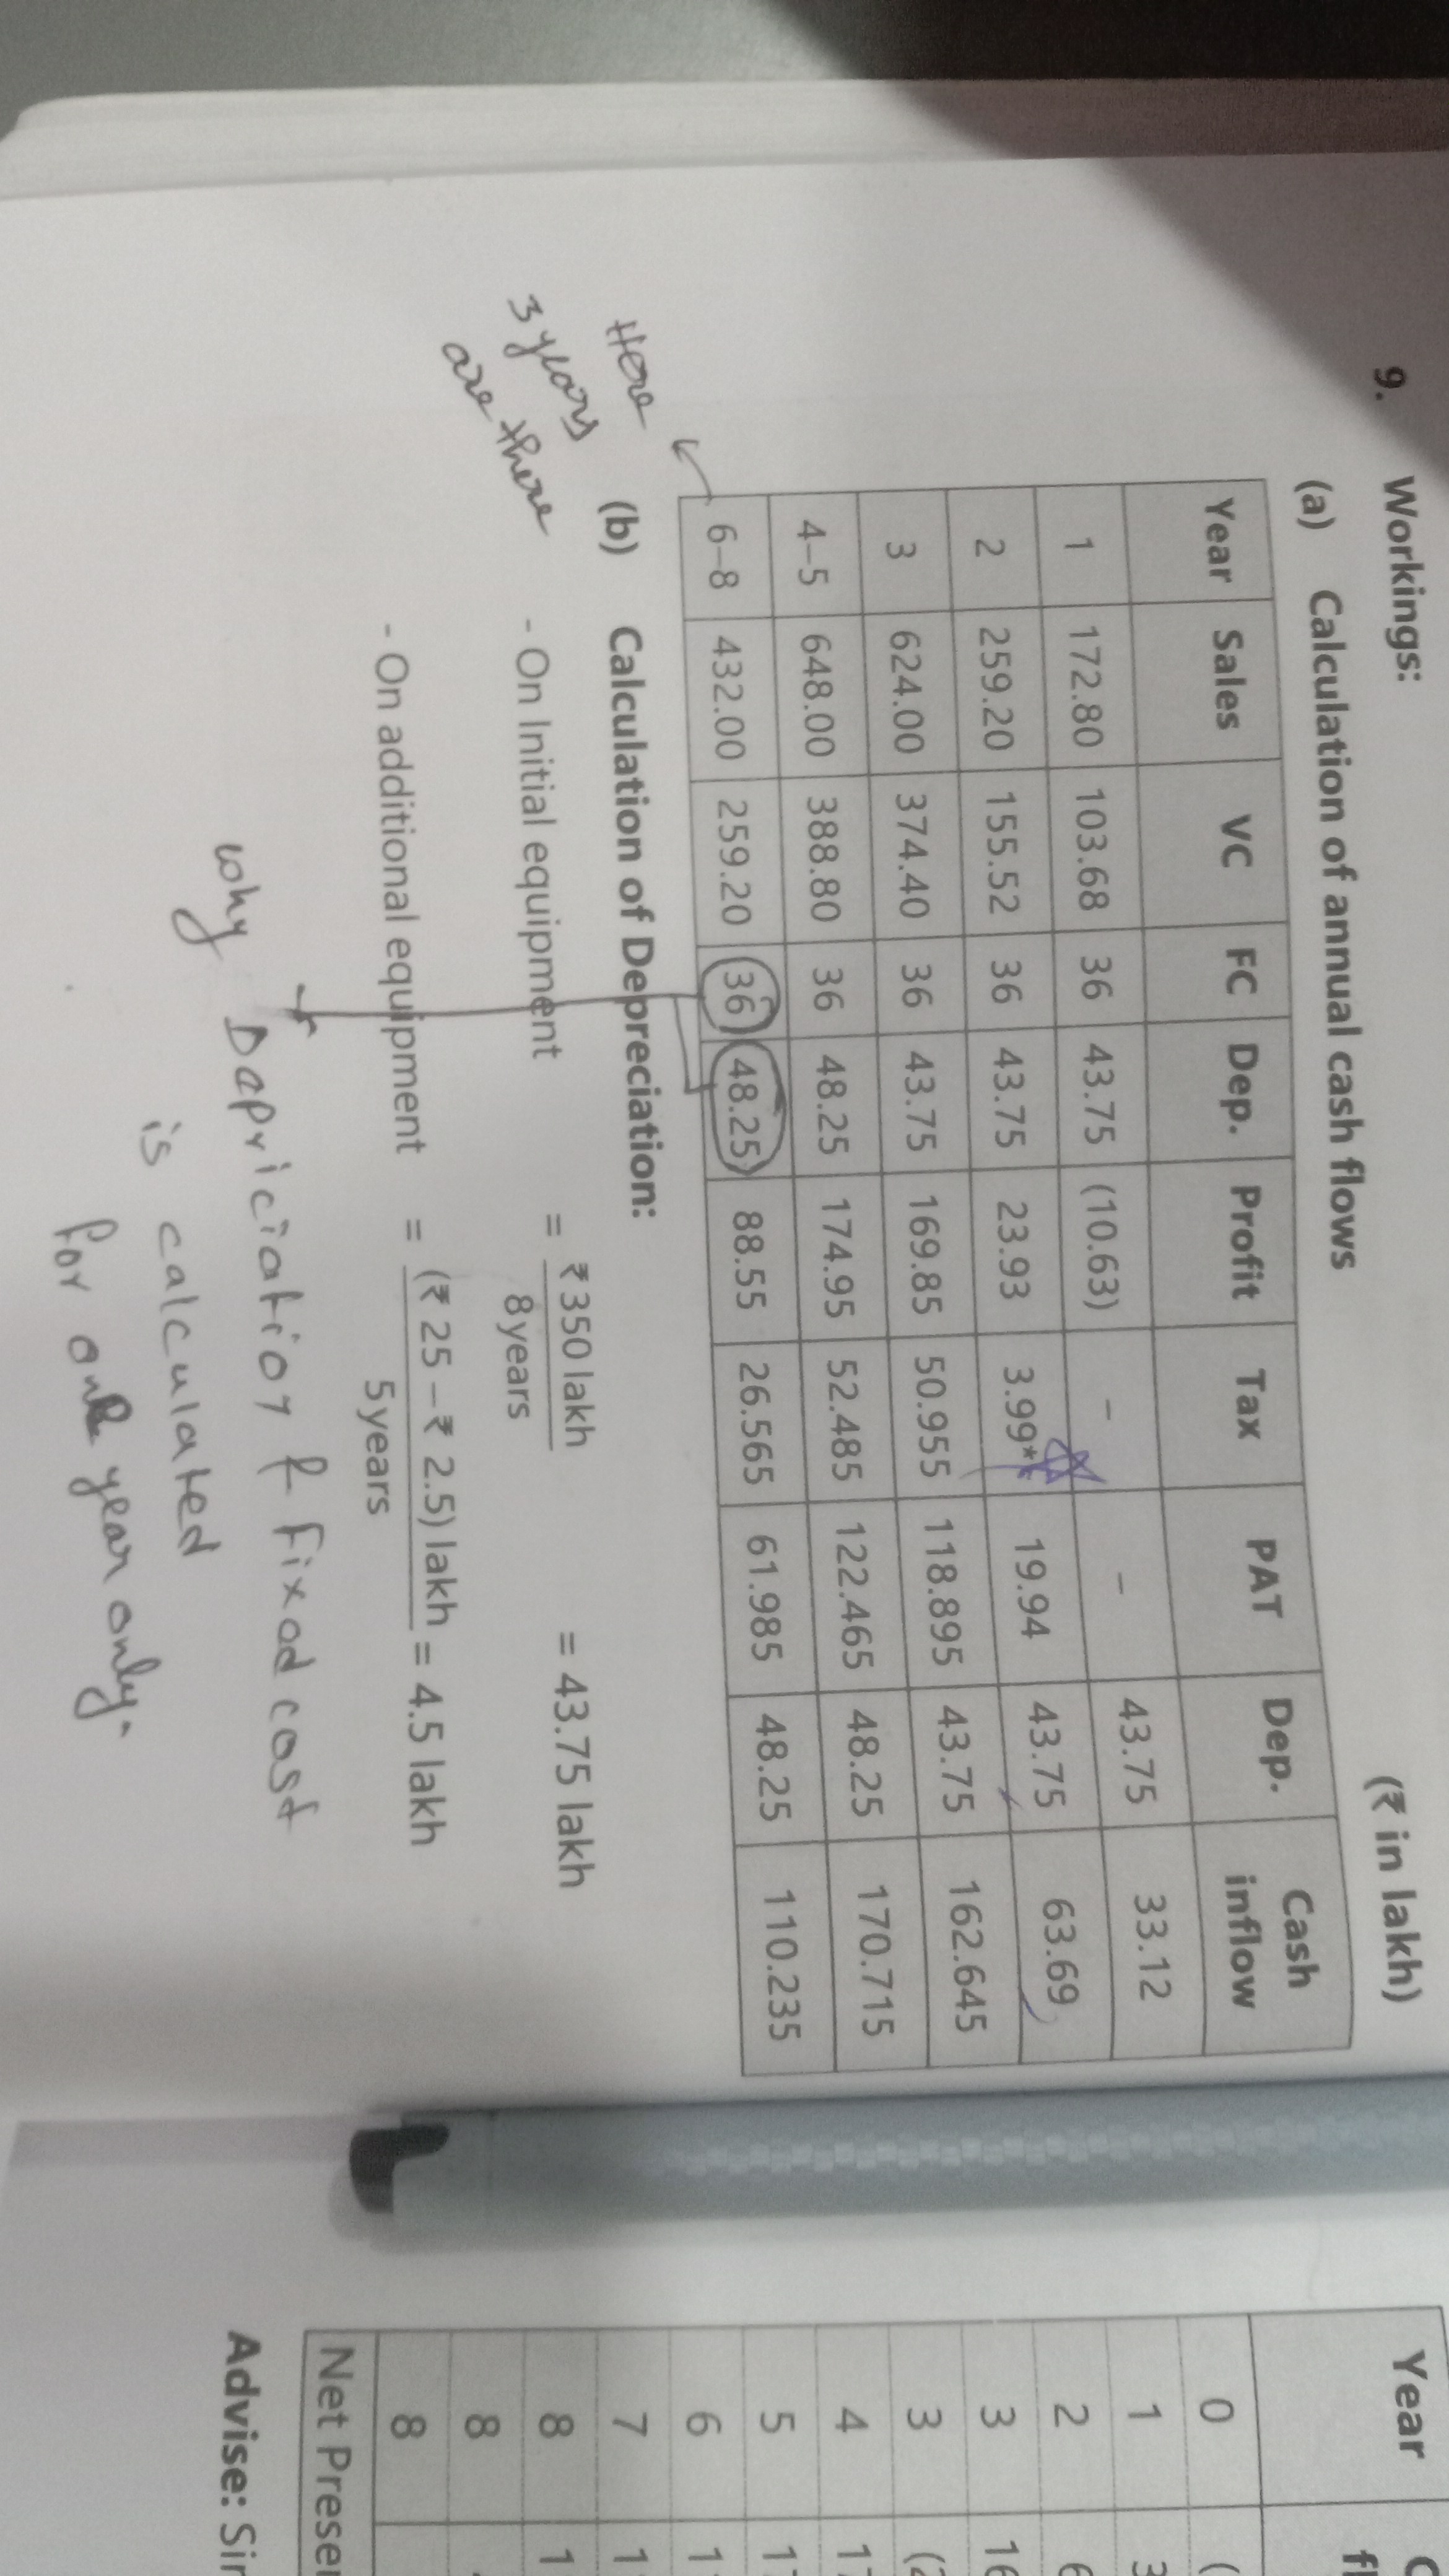 9. Workings:
(a) Calculation of annual cash flows
(₹ in lakh)
Year Sales VC FC Dep. Profit Tax PAT Dep. Cash inflow
1 172.80 103.68 36 43.75 (10.63) – – 43.75 33.12
2 259.20 155.52 36 43.75 23.93 3.99* 19.94 43.75 63.69
3 624.00 374.40 36 43.75 169.85 50.955 118.895 43.75 162.645
4–5 648.00 388.80 36 48.25 174.95 52.485 122.465 48.25 170.715
6–8 432.00 259.20 36 48.25 88.55 26.565 61.985 48.25 110.235
Here
3 years
are there
(b) Calculation of Depreciation:
- On Initial equipment = ₹ 350 lakh / 8 years = 43.75 lakh
- On additional equipment = (₹ 25 – ₹ 2.5) lakh / 5 years = 4.5 lakh
why Dapriciation & fixed cost
is calculated
for one year only.
Year
0 (
1 3
2 6
3 16
3 (2
4 1
5 1
6 1
7 1
8 1
8
8
Net Prese
Advise: Sin